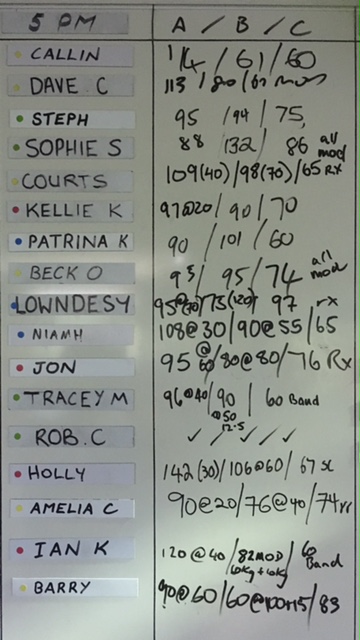 5 PM A / B / C
CALLIN 114 / 61 / 60
DAVE C 113 / 80 / 67 mods
STEPH 95 / 94 / 75
SOPHIE S 88 132 / 86 all mod
COURTS 109(40) / 98(70) / 65 Rx
KELLIE K 97@20 / 90 / 70
PATRINA K 90 / 101 / 60
BECK O 95 / 95 / 74 all mod
LOWNDESY 75(120) 97 rx
NIAMH 108@30 / 90@55 / 65
JON 95@60 / 80@80 / 76 Rx
TRACEY M 96@40 / 90 @50 / 60 Band
12.5
ROB.C ✓ / ✓ / ✓ / ✓
HOLLY 142(30) / 106@60 / 67 sc
AMELIA C 90@20 / 76@40 / 74 rx
IAN K 120@40 / 82 MOD 10kg + 10kg / 60 Band
BARRY 90@60 / 60@100+15 / 83